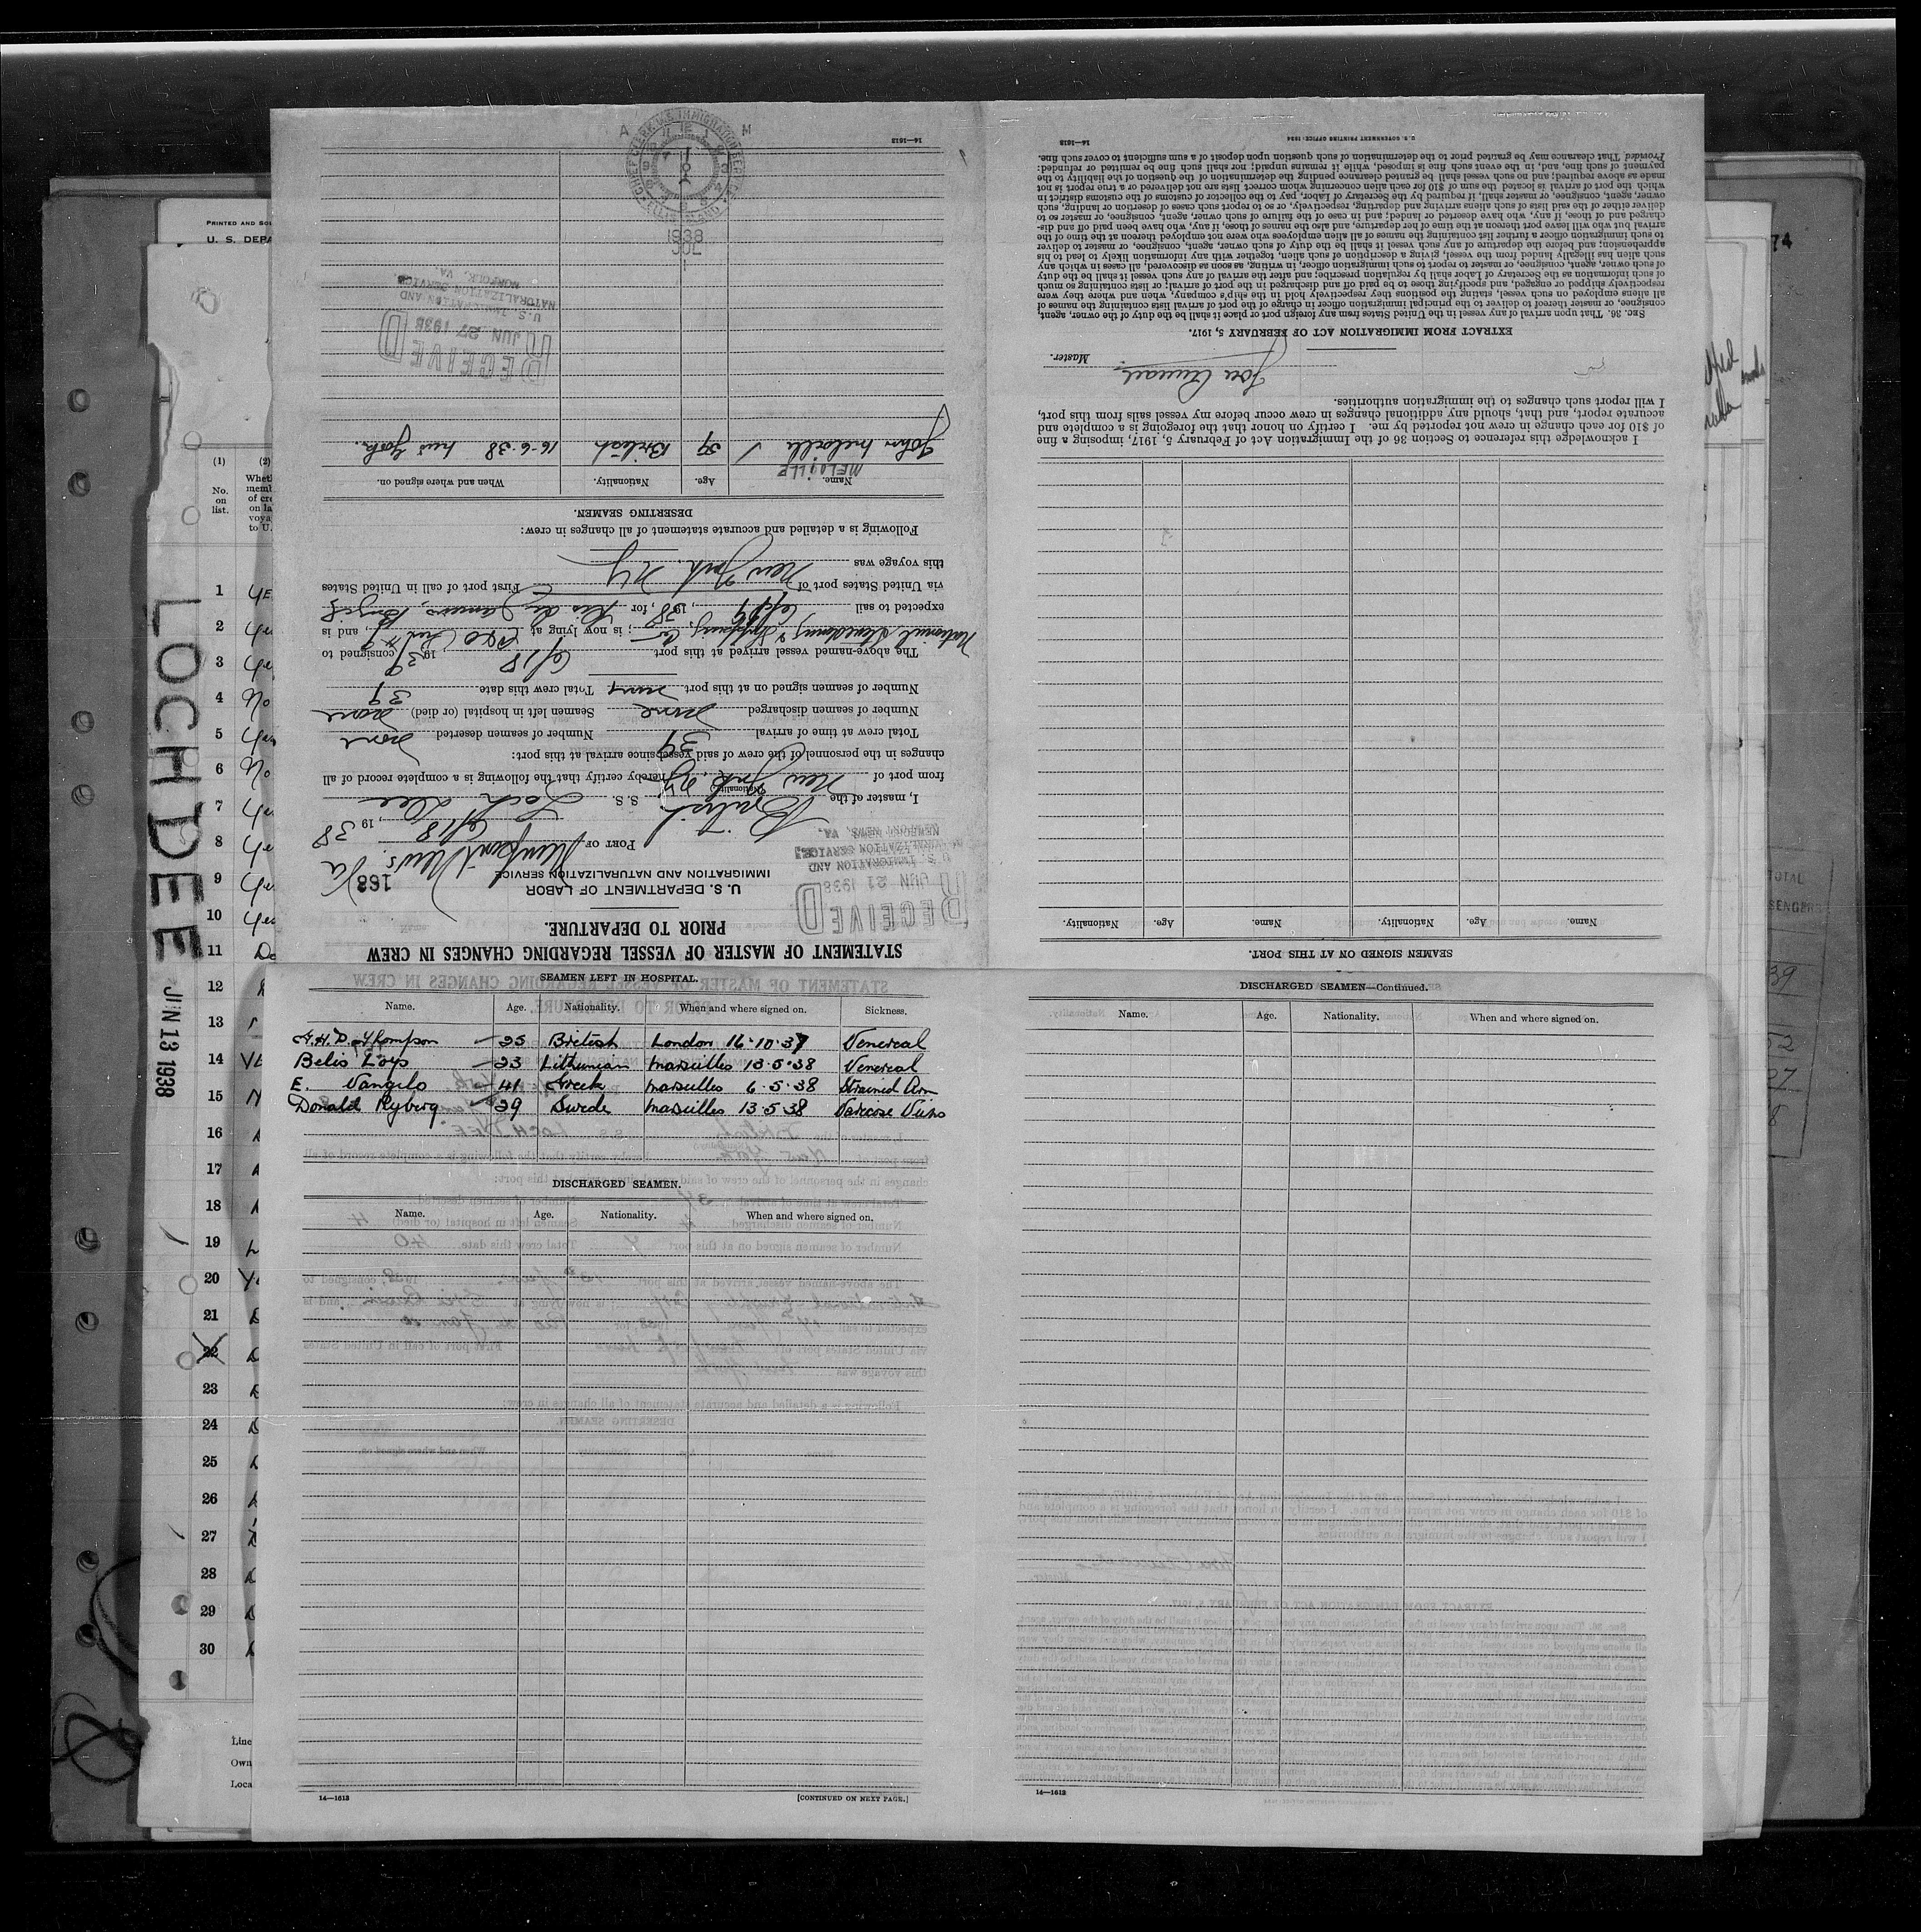 PRINTED AND
U. S. DEPA
(1)
(2)
No.
on
list.
of cre
on la
voya
to U.
LOCHDEE
JUN 13 1938
1
2
3
4 No
5
6 No
7
8
9
10
11
12
13
14
15
16
17
18
19
20
21
22
23
24
25
26
27
28
29
30
Line
Own
Loca
74
TOTAL
STATEMENT OF MASTER OF VESSEL REGARDING CHANGES IN CREW
PRIOR TO DEPARTURE.
RECEIVED
JUN 21 1938
U. S. IMMIGRATION AND
NATURALIZATION SERVICE
NEWPORT NEWS, VA.
U. S. DEPARTMENT OF LABOR
IMMIGRATION AND NATURALIZATION SERVICE
168
PORT OF Newport News, Va
6/18, 1938
I, master of the British (Nationality) S. S. Loch Dee
from port of New York, NY, hereby certify that the following is a complete record of all
changes in the personnel of the crew of said vessel since arrival at this port:
Total crew at time of arrival 39 Number of seamen deserted none
Number of seamen discharged none Seamen left in hospital (or died) none
Number of seamen signed on at this port none Total crew this date 39
The above-named vessel arrived at this port 6/18 1938, consigned to
; is now lying at C&O, and is
expected to sail 6/19, 1938, for Rio de Janeiro,
via United States port of First port of call in United States
this voyage was New York. NY
Following is a detailed and accurate statement of all changes in crew:
DESERTING SEAMEN.
Name. Age. Nationality. When and where signed on.
MELVILLE
John Melville 39 British 16-6-38 New York.
RECEIVED
JUN 27 1938
U. S. IMMIGRATION AND
NATURALIZATION SERVICE
NORFOLK, VA.
JUL
1938
14—1613
SEAMEN SIGNED ON AT THIS PORT.
Name. Age. Nationality. Name. Age. Nationality.
I acknowledge this reference to Section 36 of the Immigration Act of February 5, 1917, imposing a fine
of $10 for each change in crew not reported by me. I certify on honor that the foregoing is a complete and
accurate report, and that, should any additional changes in crew occur before my vessel sails from this port,
I will report such changes to the immigration authorities.
Master.
EXTRACT FROM IMMIGRATION ACT OF FEBRUARY 5, 1917.
SEC. 36. That upon arrival of any vessel in the United States from any foreign port or place it shall be the duty of the owner, agent,
consignee, or master thereof to deliver to the principal immigration officer in charge of the port of arrival lists containing the names of
all aliens employed on such vessel, stating the positions they respectively hold in the ship's company, when and where they were
respectively shipped or engaged, and specifying those to be paid off and discharged in the port of arrival; or lists containing so much
of such information as the Secretary of Labor shall by regulation prescribe; and after the arrival of any such vessel it shall be the duty
of such owner, agent, consignee, or master to report to such immigration officer, in writing, as soon as discovered, all cases in which any
such alien has illegally landed from the vessel, giving a description of such alien, together with any information likely to lead to his
apprehension; and before the departure of any such vessel it shall be the duty of such owner, agent, consignee, or master to deliver
to such immigration officer a further list containing the names of all alien employees who were not employed thereon at the time of the
arrival but who will leave port thereon at the time of her departure, and also the names of those, if any, who have been paid off and dis-
charged and of those, if any, who have deserted or landed; and in case of the failure of such owner, agent, consignee, or master so to
deliver either of the said lists of such aliens arriving and departing, respectively, or so to report such cases of desertion or landing, such
owner, agent, consignee, or master, shall, if required by the Secretary of Labor, pay to the collector of customs of the customs district in
which the port of arrival is located the sum of $10 for each alien concerning whom correct lists are not delivered or a true report is not
made as above required; and no such vessel shall be granted clearance pending the determination of the question of the liability to the
payment of such fine, and, in the event such fine is imposed, while it remains unpaid; nor shall such fine be remitted or refunded:
Provided That clearance may be granted prior to the determination of such question upon deposit of a sum sufficient to cover such fine.
14—1613
U. S. GOVERNMENT PRINTING OFFICE: 1934
SEAMEN LEFT IN HOSPITAL.
Name. Age. Nationality. When and where signed on. Sickness.
A.H.D. Thompson 25 British London 16·10·37 Venereal
Belis Loys 23 Lithunian Marseilles 13·5·38 Venereal
E. Vangilo 41 Greek Marseilles 6·5·38 Strained Arm
Donald Ryberg 29 Swede Marseilles 13·5·38 Varicose Viens
DISCHARGED SEAMEN.
Name. Age. Nationality. When and where signed on.
14—1613
[CONTINUED ON NEXT PAGE.]
DISCHARGED SEAMEN—Continued.
Name. Age. Nationality. When and where signed on.
14—1613